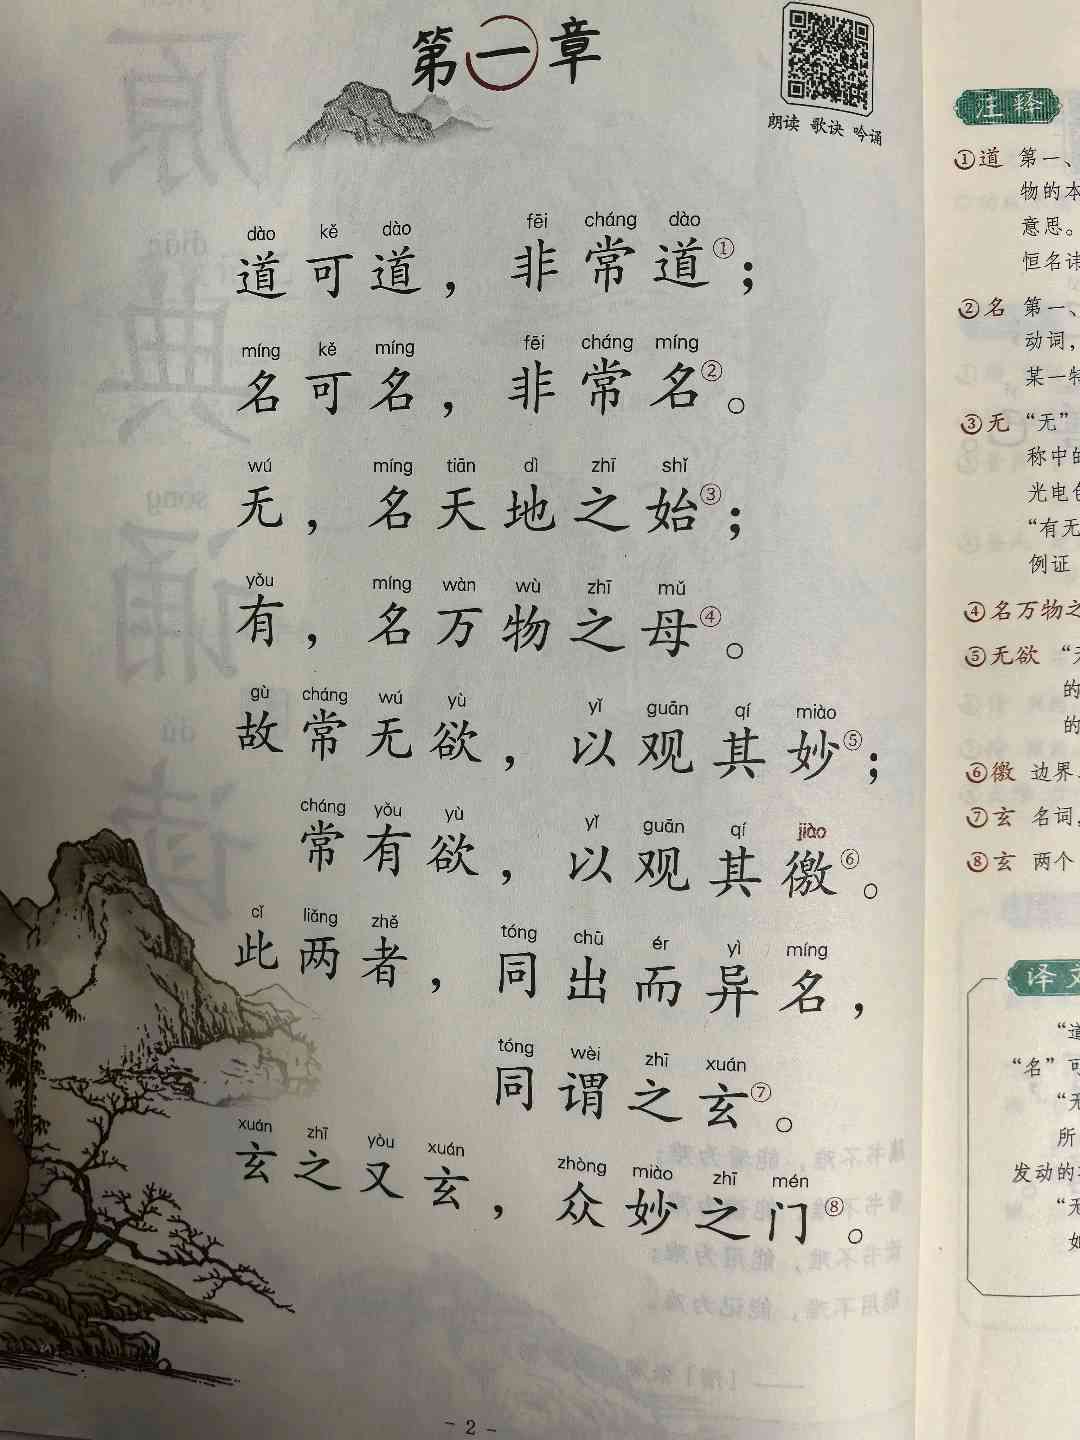 第一章
朗读 歌诀 吟诵
dào kě dào fēi cháng dào
道可道，非常道①；
míng kě míng fēi cháng míng
名可名，非常名②。
wú míng tiān dì zhī shǐ
无，名天地之始③；
yǒu míng wàn wù zhī mǔ
有，名万物之母④。
gù cháng wú yù yǐ guān qí miào
故常无欲，以观其妙⑤；
cháng yǒu yù yǐ guān qí jiào
常有欲，以观其徼⑥。
cǐ liǎng zhě tóng chū ér yì míng
此两者，同出而异名，
tóng wèi zhī xuán
同谓之玄⑦。
xuán zhī yòu xuán zhòng miào zhī mén
玄之又玄，众妙之门⑧。
- 2 -
注释
①道 第一、
物的本
意思。
恒名
②名 第一、
动词，
某一特
③无 “无”
称中的
光电
“有无
例证
④名万物之
⑤无欲
的
的
⑥徼 边界、
⑦玄 名词，
⑧玄 两个
译文
“道
“名”可
“无
所
发动的
“无
如